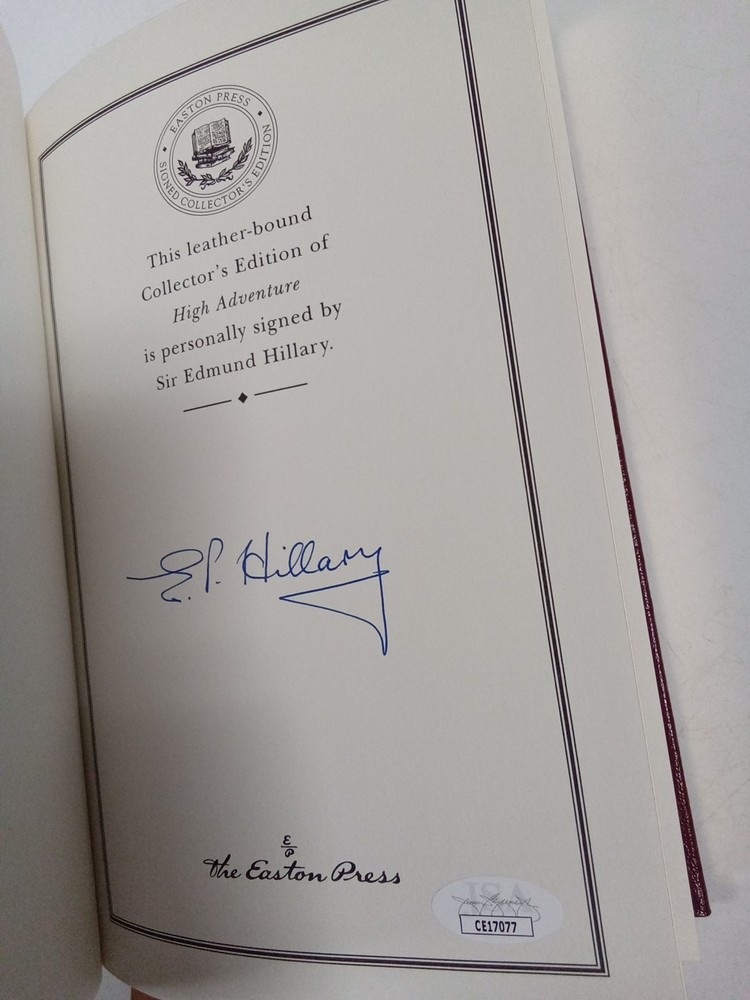 EASTON PRESS
SIGNED COLLECTOR'S EDITION
This leather-bound
Collector's Edition of
High Adventure
is personally signed by
Sir Edmund Hillary.
E.P. Hillary
E
P
the Easton Press
JSA
CE17077